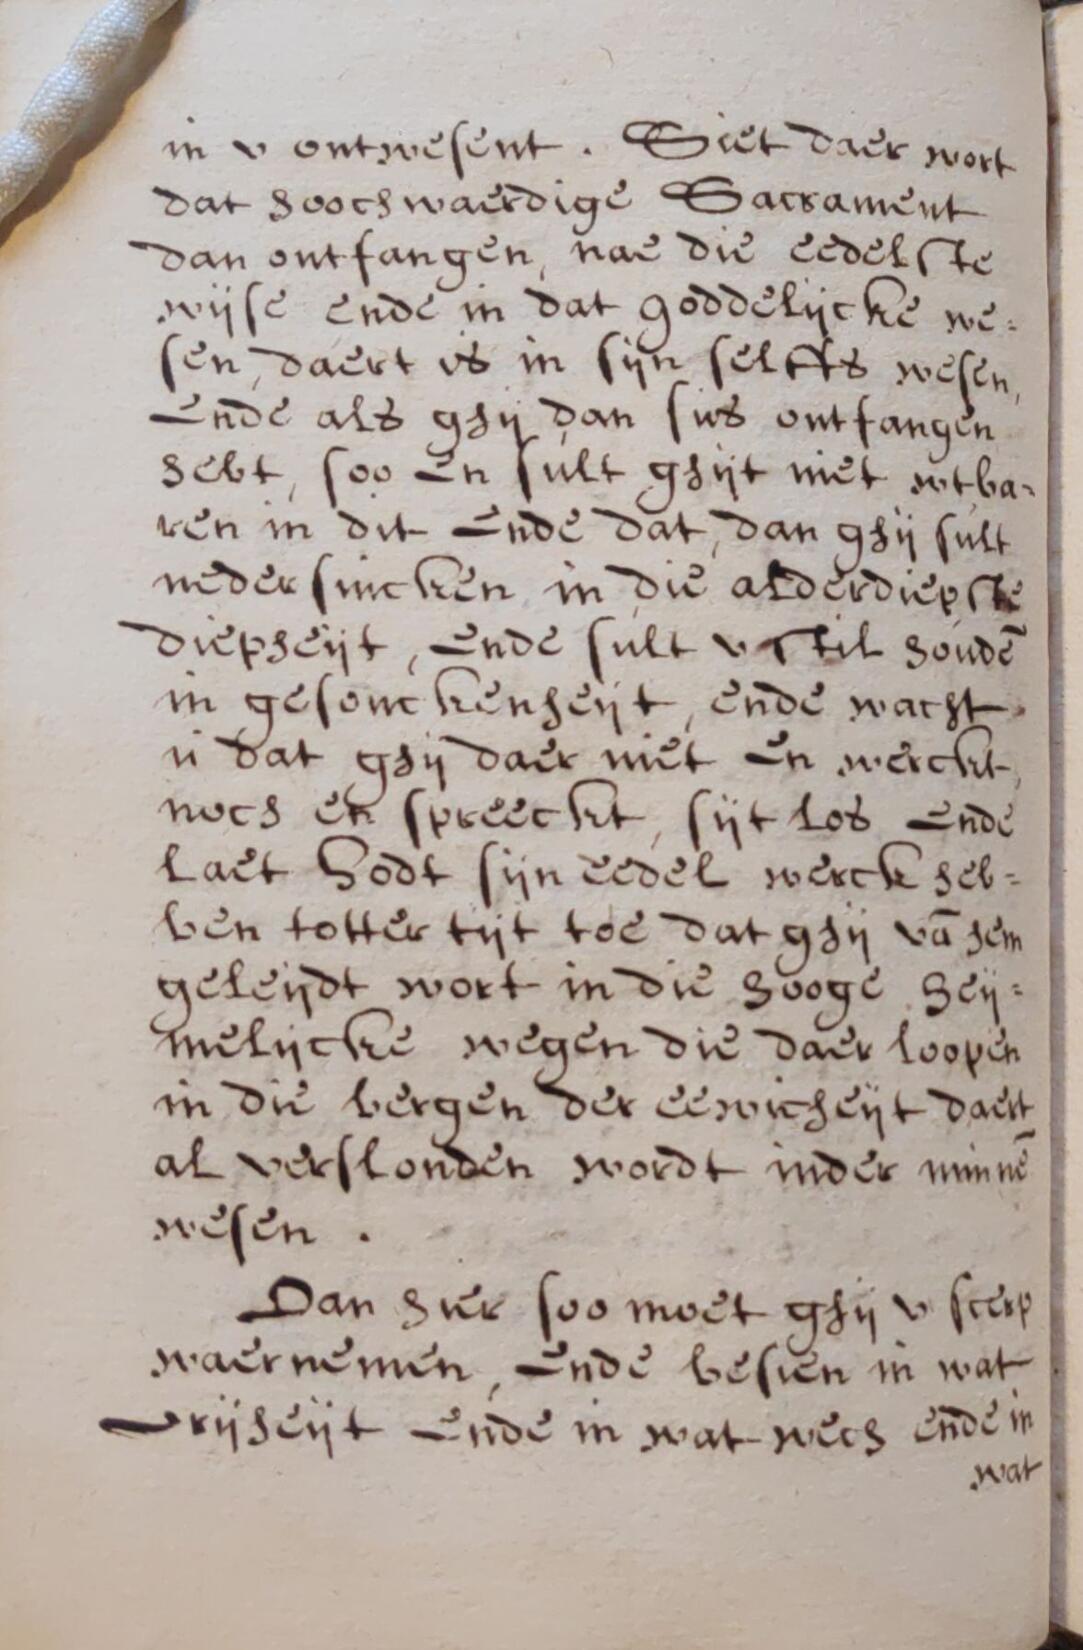 in v ontwesent. Siet daer wort
dat hoochwaerdige Sacrament
dan ontfangen, nae die eedelste
wijse ende in dat goddelijcke we=
sen, daert is in sijn selffs wesen,
Ende als ghij dan sus ontfangen
hebt, soo en sult ghijt niet wtba=
ren in dit Ende dat, dan ghij sult
neder sincken in die alderdiepste
diepheijt, Ende sult v stil houdē
in gesonckenheijt, ende wacht
u dat ghij daer niet En werckt,
noch en spreeckt, sijt los Ende
laet Godt sijn eedel werck heb=
ben totter tijt toe dat ghij vā hem
geleijdt wort in die hooge heij=
melijcke wegen die daer loopen
in die bergen der eewicheijt daert
al verslonden wordt inder minnē
wesen.
Dan hier soo moet ghij v scerp
waernemen, Ende besien in wat
vrijheijt Ende in wat wech ende in
wat